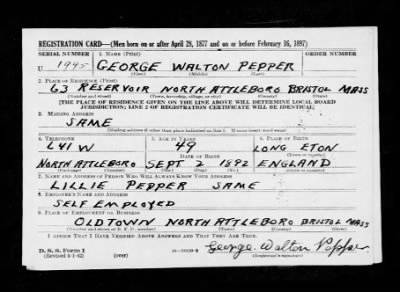 REGISTRATION CARD—(Men born on or after April 28, 1877 and on or before February 16, 1897)
SERIAL NUMBER 1. NAME (Print) ORDER NUMBER
U 1995 GEORGE WALTON PEPPER
(First) (Middle) (Last)
2. PLACE OF RESIDENCE (Print)
63 RESERVOIR NORTH ATTLEBORO BRISTOL MASS
(Number and street) (Town, township, village, or city) (County) (State)
[THE PLACE OF RESIDENCE GIVEN ON THE LINE ABOVE WILL DETERMINE LOCAL BOARD
JURISDICTION; LINE 2 OF REGISTRATION CERTIFICATE WILL BE IDENTICAL]
3. MAILING ADDRESS
SAME
[Mailing address if other than place indicated on line 2. If same insert word same]
4. TELEPHONE 5. AGE IN YEARS 6. PLACE OF BIRTH
641 W 49 LONG ETON
DATE OF BIRTH
NORTH ATTLEBORO SEPT 2 1892 ENGLAND
7. NAME AND ADDRESS OF PERSON WHO WILL ALWAYS KNOW YOUR ADDRESS
LILLIE PEPPER SAME
8. EMPLOYER'S NAME AND ADDRESS
SELF EMPLOYED
9. PLACE OF EMPLOYMENT OR BUSINESS
OLDTOWN NORTH ATTLEBORO BRISTOL MASS
(Number and street or R. F. D. number) (Town) (County) (State)
I AFFIRM THAT I HAVE VERIFIED ABOVE ANSWERS AND THAT THEY ARE TRUE.
D. S. S. Form 1
(Revised 4-1-42) (over) George Walton Pepper
(Registrant's signature)